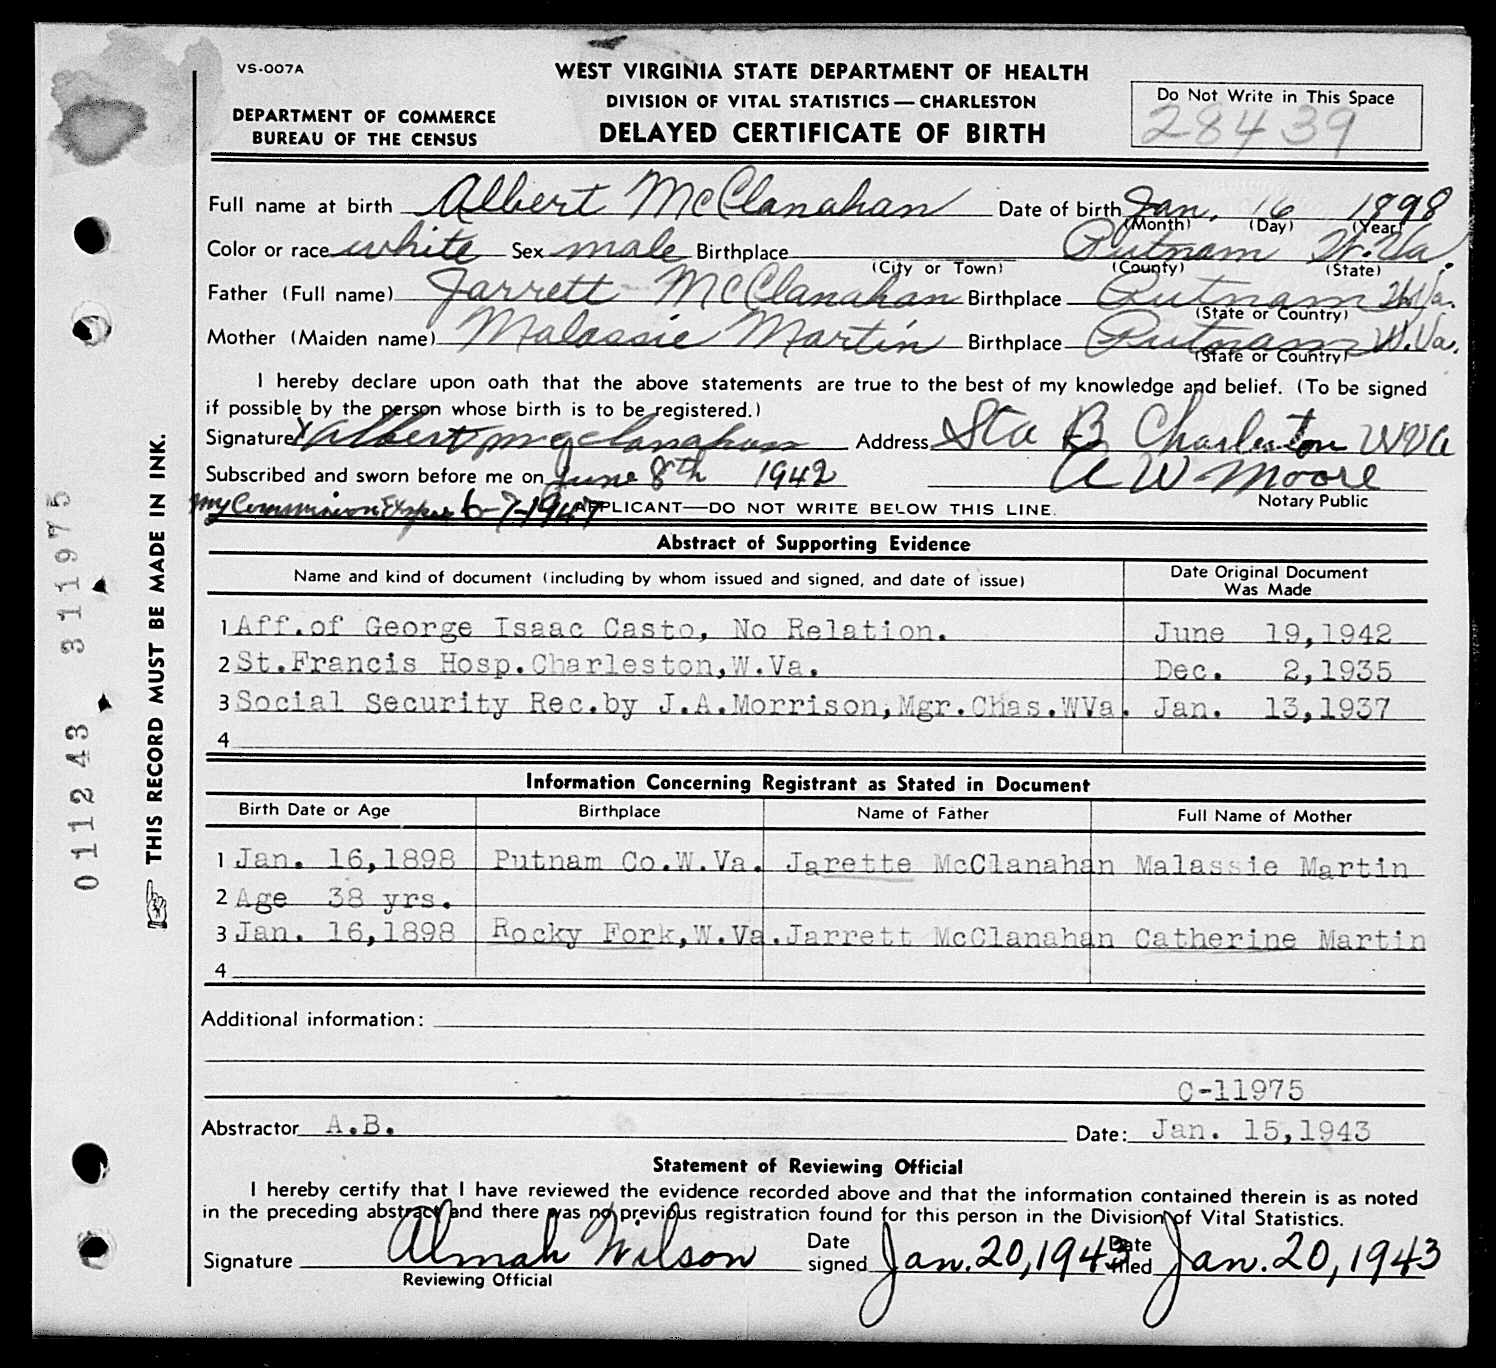 VS-007A
WEST VIRGINIA STATE DEPARTMENT OF HEALTH
DIVISION OF VITAL STATISTICS — CHARLESTON
DELAYED CERTIFICATE OF BIRTH
DEPARTMENT OF COMMERCE
BUREAU OF THE CENSUS
Do Not Write in This Space
28439
Full name at birth Albert McClanahan Date of birth Jan. 16 1898
(Month) (Day) (Year)
Color or race white Sex male Birthplace Putnam W.Va.
(City or Town) (County) (State)
Father (Full name) Jarrett McClanahan Birthplace Putnam W.Va.
(State or Country)
Mother (Maiden name) Malassie Martin Birthplace Putnam W.Va.
(State or Country)
I hereby declare upon oath that the above statements are true to the best of my knowledge and belief. (To be signed
if possible by the person whose birth is to be registered.)
Signature X Albert McClanahan Address Sta B Charleston WVa
Subscribed and sworn before me on June 8th 1942 A W Moore
Notary Public
My Commission Expires 6-7-1947 APPLICANT—DO NOT WRITE BELOW THIS LINE.
Abstract of Supporting Evidence
Name and kind of document (including by whom issued and signed, and date of issue) Date Original Document Was Made
1 Aff.of George Isaac Casto, No Relation. June 19,1942
2 St.Francis Hosp.Charleston,W.Va. Dec. 2,1935
3 Social Security Rec.by J.A.Morrison,Mgr.Chas.WVa. Jan. 13,1937
4
Information Concerning Registrant as Stated in Document
Birth Date or Age Birthplace Name of Father Full Name of Mother
1 Jan. 16,1898 Putnam Co.W.Va. Jarette McClanahan Malassie Martin
2 Age 38 yrs.
3 Jan. 16,1898 Rocky Fork,W.Va. Jarrett McClanahan Catherine Martin
4
Additional information:
C-11975
Abstractor A.B. Date: Jan. 15,1943
Statement of Reviewing Official
I hereby certify that I have reviewed the evidence recorded above and that the information contained therein is as noted
in the preceding abstract and there was no previous registration found for this person in the Division of Vital Statistics.
Signature Almah Wilson Date signed Jan. 20, 1943 Date filed Jan. 20, 1943
Reviewing Official
THIS RECORD MUST BE MADE IN INK.
011243 311975